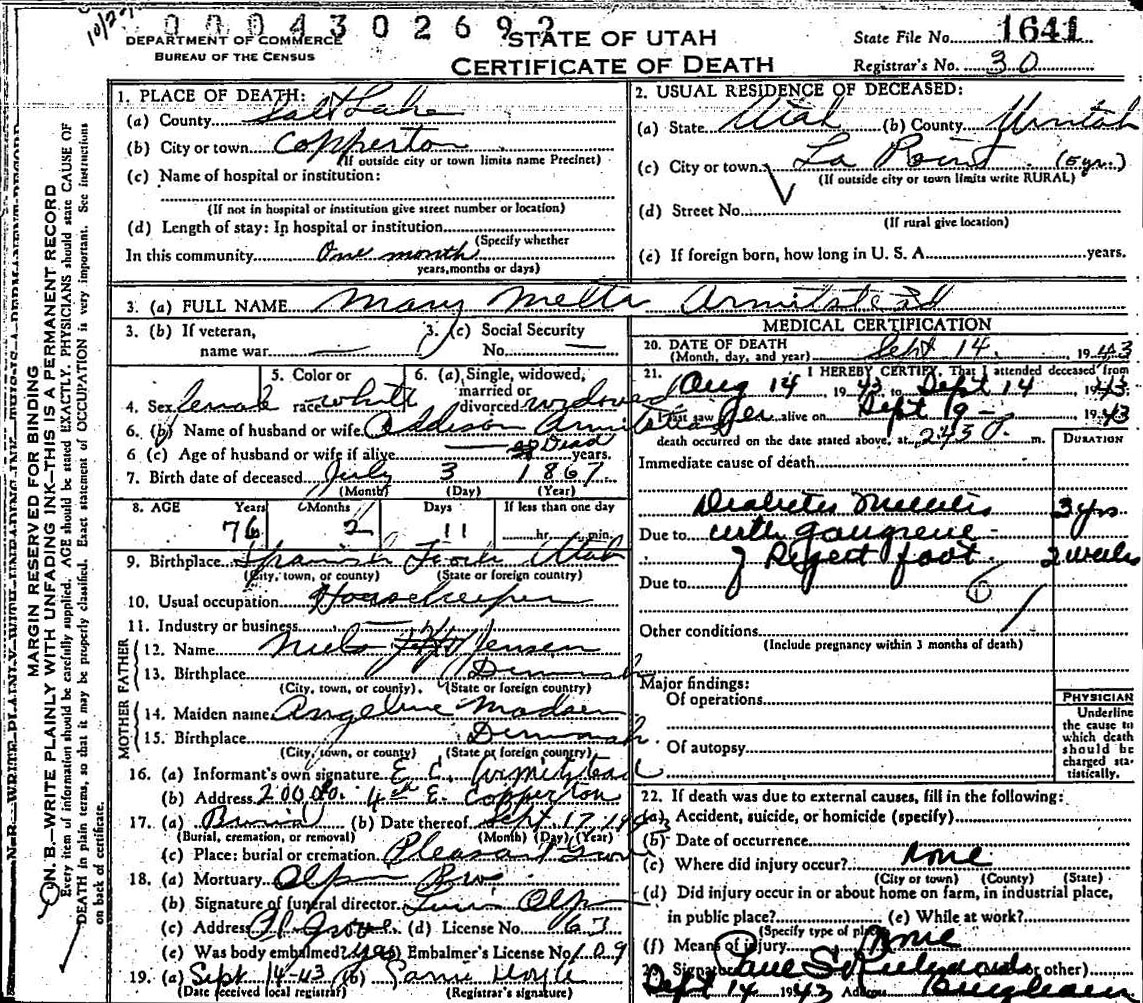 10/27
0004302692
DEPARTMENT OF COMMERCE
BUREAU OF THE CENSUS
STATE OF UTAH
CERTIFICATE OF DEATH
State File No. 1641
Registrar's No. 30
MARGIN RESERVED FOR BINDING
N. B.—WRITE PLAINLY WITH UNFADING INK—THIS IS A PERMANENT RECORD
Every item of information should be carefully supplied. AGE should be stated EXACTLY. PHYSICIANS should state CAUSE OF
DEATH in plain terms, so that it may be properly classified. Exact statement of OCCUPATION is very important. See instructions
on back of certificate.
1. PLACE OF DEATH:
(a) County Salt Lake
(b) City or town Copperton
(If outside city or town limits name Precinct)
(c) Name of hospital or institution:
(If not in hospital or institution give street number or location)
(d) Length of stay: In hospital or institution
(Specify whether
In this community One month
years, months or days)
2. USUAL RESIDENCE OF DECEASED:
(a) State Utah (b) County Uintah
(c) City or town La Point (5 yr.)
(If outside city or town limits write RURAL)
(d) Street No.
(If rural give location)
(e) If foreign born, how long in U. S. A. years.
3. (a) FULL NAME Mary Melta Armitstead
3. (b) If veteran, name war —
3. (c) Social Security No. —
4. Sex female
5. Color or race white
6. (a) Single, widowed, married or divorced widowed
6. (b) Name of husband or wife Addison Armitstead
6 (c) Age of husband or wife if alive Dead years.
7. Birth date of deceased July 3 1867
(Month) (Day) (Year)
8. AGE Years 76 Months 2 Days 11 If less than one day hr. min.
9. Birthplace Spanish Fork Utah
(City, town, or county) (State or foreign country)
10. Usual occupation Housekeeper
11. Industry or business —
FATHER
12. Name Niels Jensen
13. Birthplace Denmark
(City, town, or county) (State or foreign country)
MOTHER
14. Maiden name Angeline Madsen
15. Birthplace Denmark
(City, town, or county) (State or foreign country)
16. (a) Informant's own signature E. E. Armitstead
(b) Address 4th E. Copperton
17. (a) Burial (b) Date thereof Sept. 17, 1943
(Burial, cremation, or removal) (Month) (Day) (Year)
(c) Place: burial or cremation Pleasant Grove
18. (a) Mortuary Olpin Bros.
(b) Signature of funeral director Olpin
(c) Address Pl. Grove (d) License No. 63
(e) Was body embalmed? yes Embalmer's License No. 109
19. (a) Sept 14-43 (b)
(Date received local registrar) (Registrar's signature)
MEDICAL CERTIFICATION
20. DATE OF DEATH
(Month, day, and year) Sept 14, 1943
21. I HEREBY CERTIFY, That I attended deceased from
Aug 14, 1943 to Sept 14 1943
I last saw her alive on Sept 1943
death occurred on the date stated above, at 243 m.
DURATION
Immediate cause of death
Diabetes Mellitis 3 yrs
Due to with gangrene
of Right foot 2 weeks
Due to
Other conditions
(Include pregnancy within 3 months of death)
Major findings:
Of operations
Of autopsy
PHYSICIAN
Underline
the cause to
which death
should be
charged sta-
tistically.
22. If death was due to external causes, fill in the following:
(a) Accident, suicide, or homicide (specify)
(b) Date of occurrence
(c) Where did injury occur? None
(City or town) (County) (State)
(d) Did injury occur in or about home on farm, in industrial place,
in public place? (e) While at work?
(Specify type of place)
(f) Means of injury None
Signature Paul S. Richards or other)
Sept 14 1943 Address Bingham